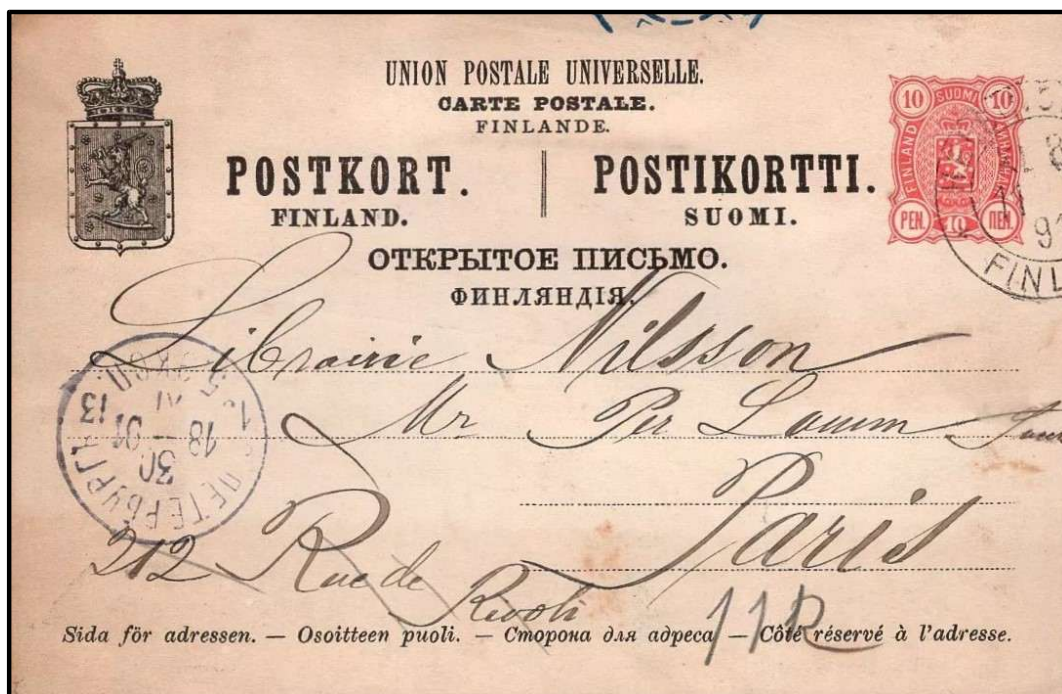 UNION POSTALE UNIVERSELLE.
CARTE POSTALE.
FINLANDE.
POSTKORT. POSTIKORTTI.
FINLAND. SUOMI.
ОТКРЫТОЕ ПИСЬМО.
ФИНЛЯНДІЯ.
10 SUOMI 10
FINLAND
PEN. 10 ПЕН.
FINL
Librairie Nilsson
Mr Per Lamm
Paris
212 Rue de
Rivoli
ПЕТЕРБУРГЪ
30
18 91
13
Sida för adressen. — Osoitteen puoli. — Сторона для адреса — Côté réservé à l'adresse.